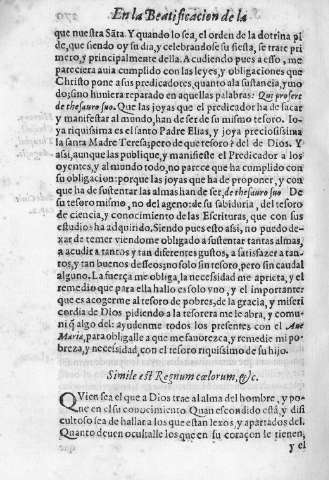 En la Beatificacion de la
que nuestra Sāta. Y quando lo sea, el orden de la dotrina pi
de, que siendo oy su dia, y celebrandose su fiesta, se trate pri
mero, y principalmente della. Acudiendo pues a esso, me
pareciera auia cumplido con las leyes, y obligaciones que
Christo pone a sus predicadores, quanto a la sustancia, y mo
do; sino huuiera reparado en aquellas palabras: Qui profert
de thesauro suo. Que las joyas que el predicador ha de sacar
y manifestar al mundo, han de ser de su mismo tesoro. Io-
ya riquissima es el santo Padre Elias, y joya preciosissima
la santa Madre Teresa; pero de que tesoro? del de Dios. Y
assi, aunque las publique, y manifieste el Predicador a los
oyentes, y al mundo todo, no parece que ha cumplido con
su obligacion: porque las joyas que ha de proponer, y con
que ha de sustentar las almas han de ser, de thesauro suo. De
su tesoro mismo, no del ageno: de su sabiduria, del tesoro
de ciencia, y conocimiento de las Escrituras, que con sus
estudios ha adquirido. Siendo pues esto assi, no puedo de-
xar de temer viendome obligado a sustentar tantas almas,
a acudir a tantos y tan diferentes gustos, a satisfazer a tan-
tos, y tan buenos desseos; no solo sin tesoro, pero sin caudal
alguno. La fuerça me obliga, la necessidad me aprieta, y el
remedio que para ella hallo es solo vno, y el importante:
que es acogerme al tesoro de pobres, de la gracia, y miseri
cordia de Dios pidiendo a la tesorera me le abra, y comu-
niq̃ algo del: ayudenme todos los presentes con el Aue
Maria, para obligalle a que me fauorezca, y remedie mi po-
breza, y necessidad, con el tesoro riquissimo de su hijo.
Simile est Regnum cœlorum, &c.
QVien sea el que a Dios trae al alma del hombre, y po-
ne en el su conocimiento. Quan escondido está, y difi
cultoso sea de hallar a los que estan lexos, y apartados del.
Quanto deuen ocultalle los que en su coraçon le tienen,
y el